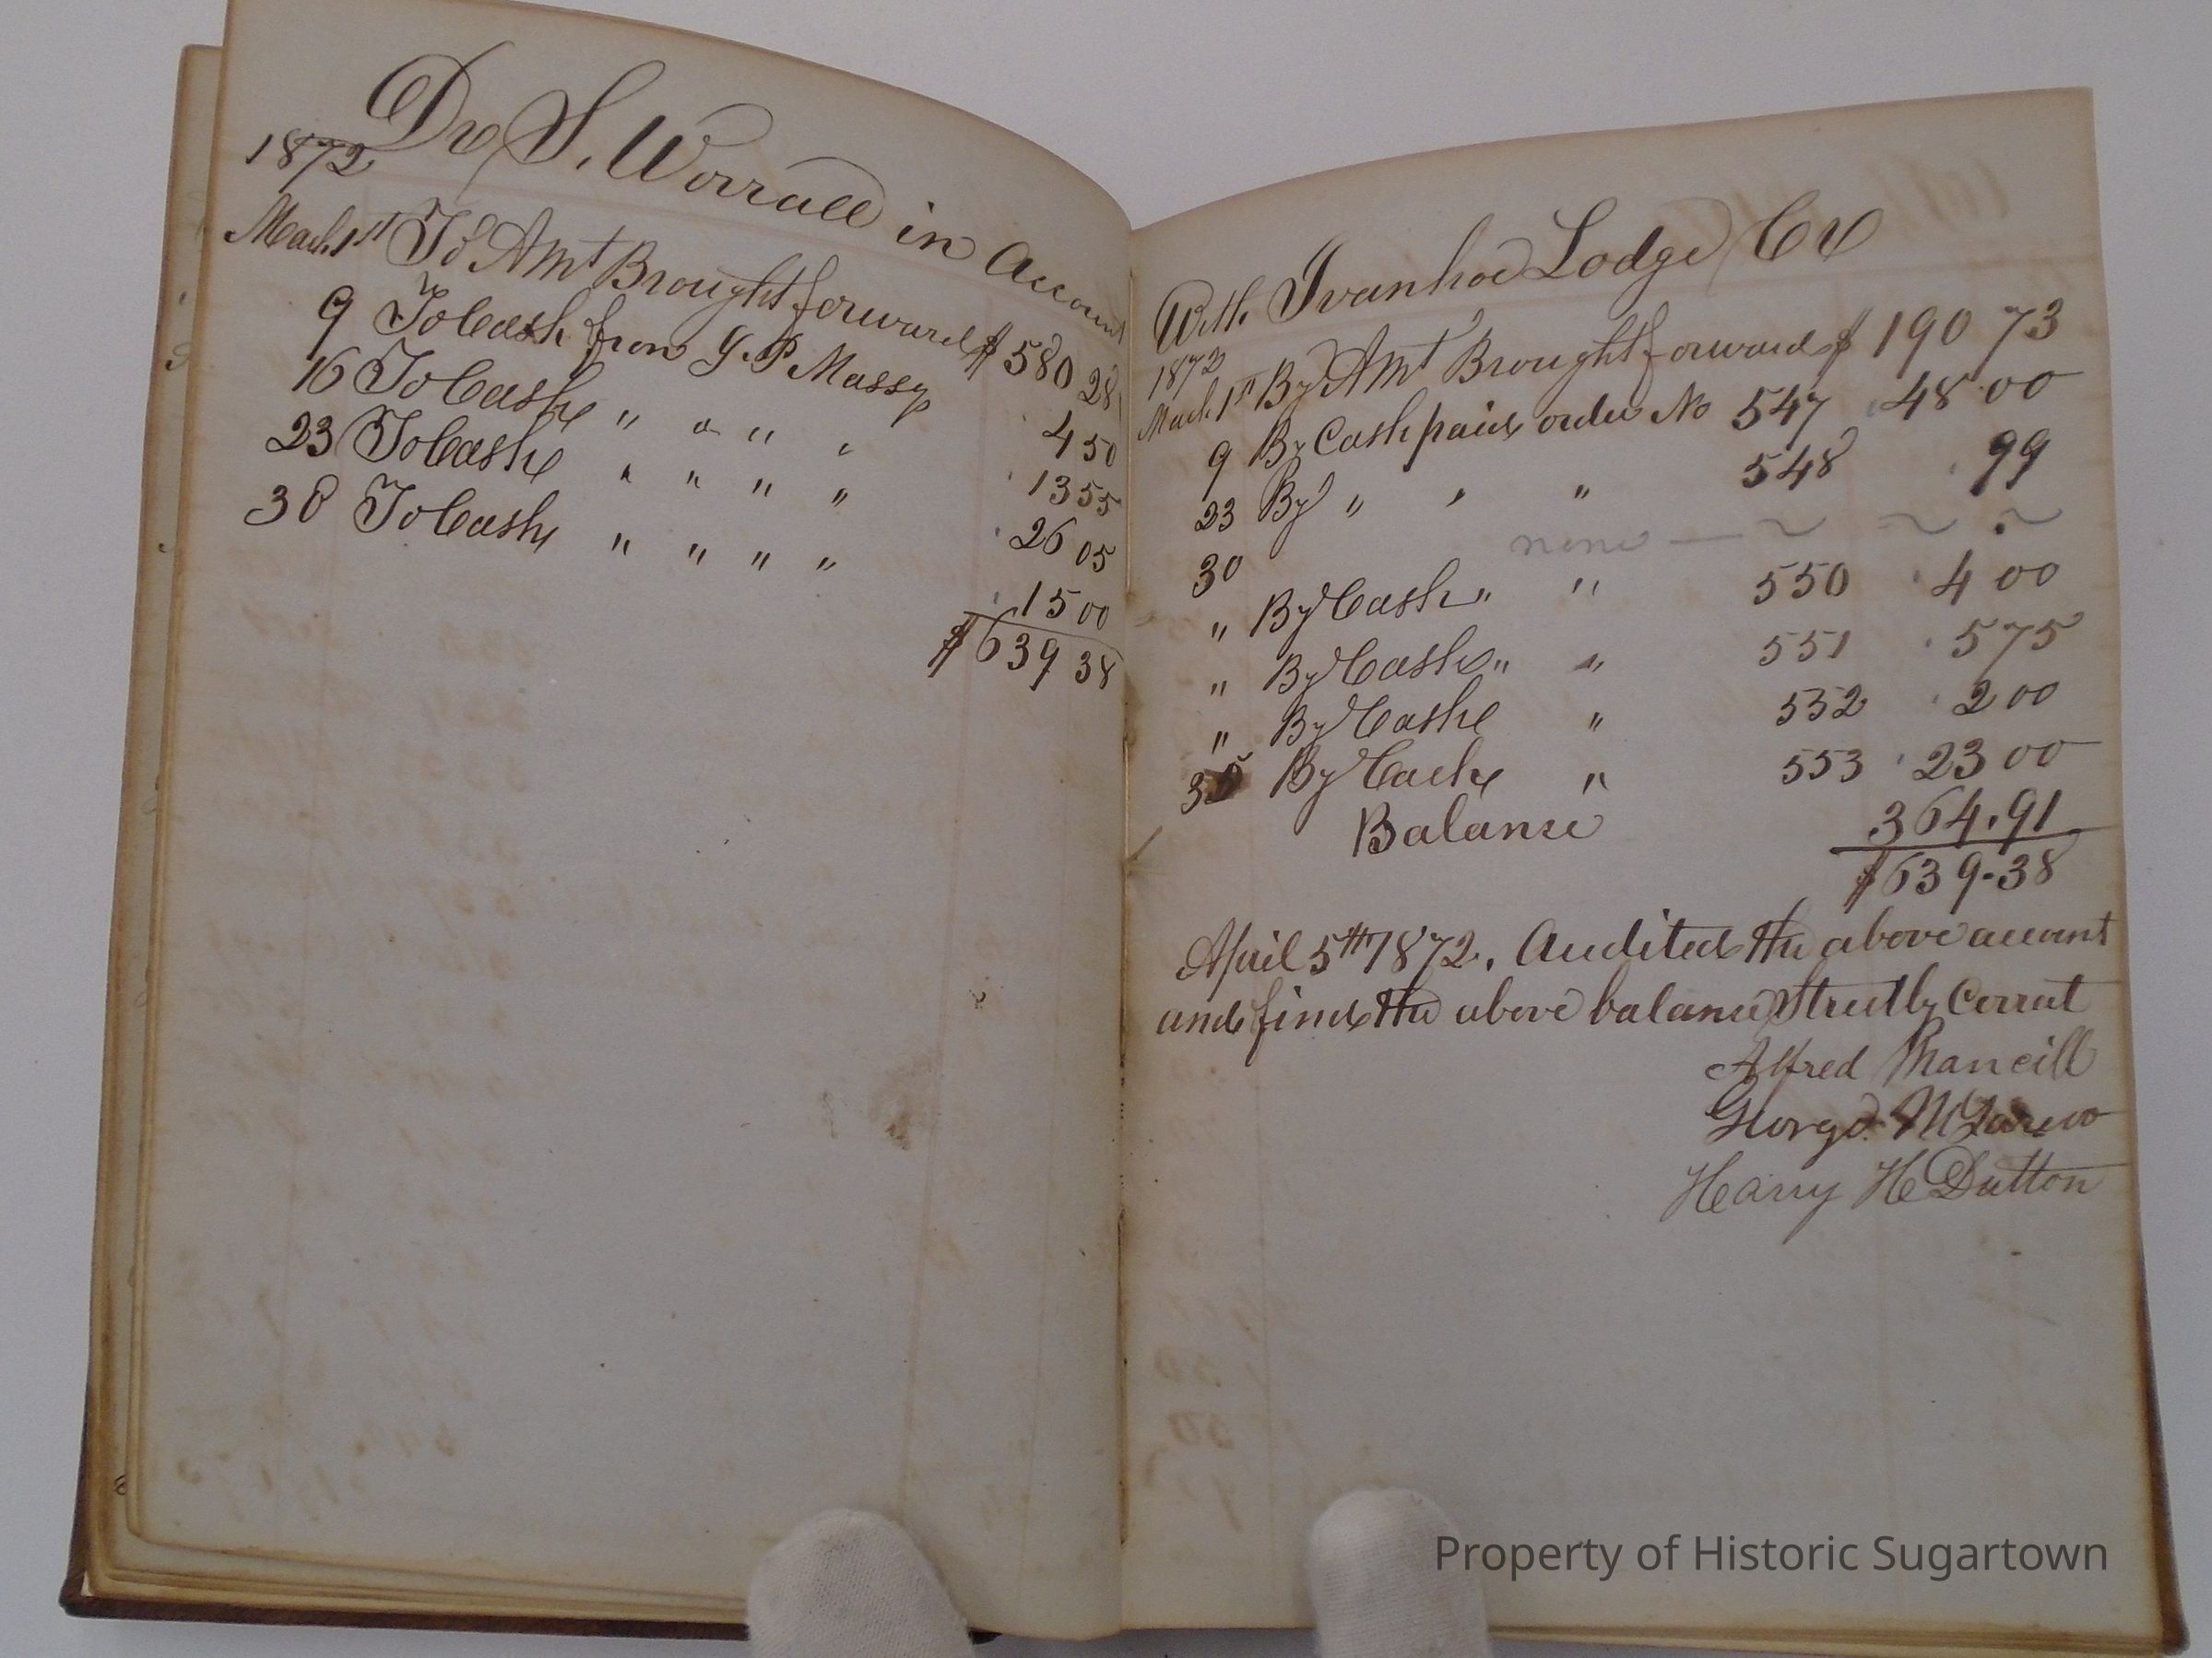 Dr S. Worrall in Account
1872
March 1st To Amt Brought forward $ 580 28
9 To Cash from G. P Massy 4 50
16 To Cash " " " " 13 55
23 To Cash " " " " 26 05
30 To Cash " " " " 15 00
$ 639 38
With Ivanhoe Lodge Cr
1872
March 1st By Amt Brought forward $ 190 73
9 By Cash paid order No 547 48 00
23 By " " " 548 99
30 none — ~ ~ ~
" By Cash " " 550 4 00
" By Cash " " 551 5 75
" By Cash " 552 2 00
30 By Cash " 553 23 00
Balance 364.91
$639.38
April 5th 1872. Audited the above account
and find the above balance Strictly Correct
Alfred Mancill
George
Harry H Dutton
Property of Historic Sugartown